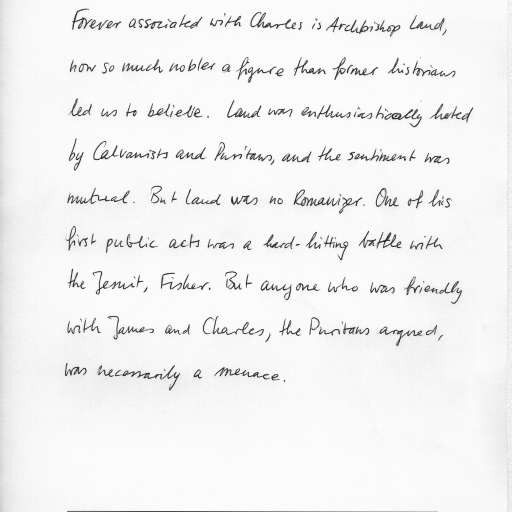 Forever associated with Charles is Archbishop Laud,
now so much nobler a figure than former historians
led us to believe. Laud was enthusiastically hated
by Calvanists and Puritans, and the sentiment was
mutual. But Laud was no Romanizer. One of his
first public acts was a hard-hitting battle with
the Jesuit, Fisher. But anyone who was friendly
with James and Charles, the Puritans argued,
was necessarily a menace.